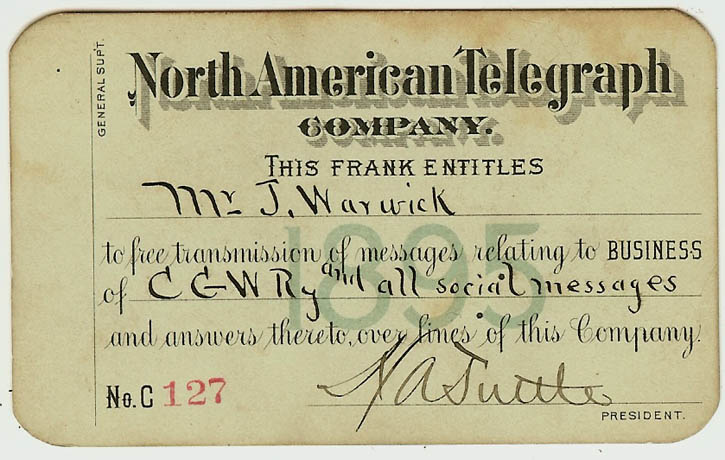 GENERAL SUPT.
North American Telegraph
COMPANY.
THIS FRANK ENTITLES
Mr J. Warwick
1895
to free transmission of messages relating to BUSINESS
of C G W Ry and all social messages
and answers thereto, over lines of this Company.
No. C 127
H A Tuttle
PRESIDENT.